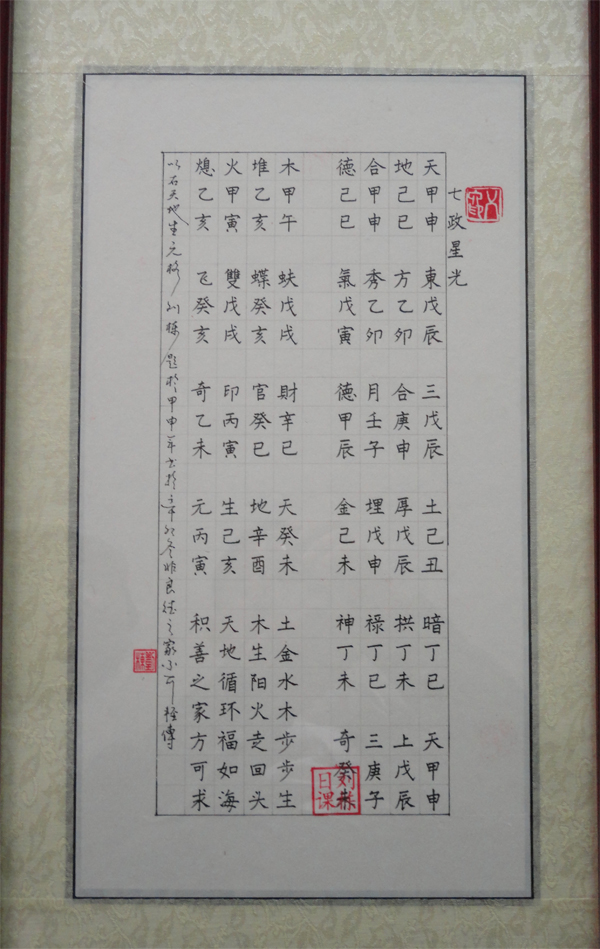 七政星光
天甲申 東戊辰 三戊辰 土己丑 暗丁巳 天甲申
地己巳 方乙卯 合庚申 厚戊辰 拱丁未 上戊辰
合甲申 秀乙卯 月壬子 埋戊申 禄丁巳 三庚子
德己巳 氣戊寅 德甲辰 金己未 神丁未 奇癸未
木甲午 蚨戊戌 財辛巳 天癸未 土金水木步步生
堆乙亥 蝶癸亥 官癸巳 地辛酉 木生阳火走回头
火甲寅 雙戊戌 印丙寅 生己亥 天地循环福如海
熄乙亥 飞癸亥 奇乙未 元丙寅 积善之家方可求
以石天地生元格 刘 题於甲申年书於辛卯冬 良 之家小
刘 日课